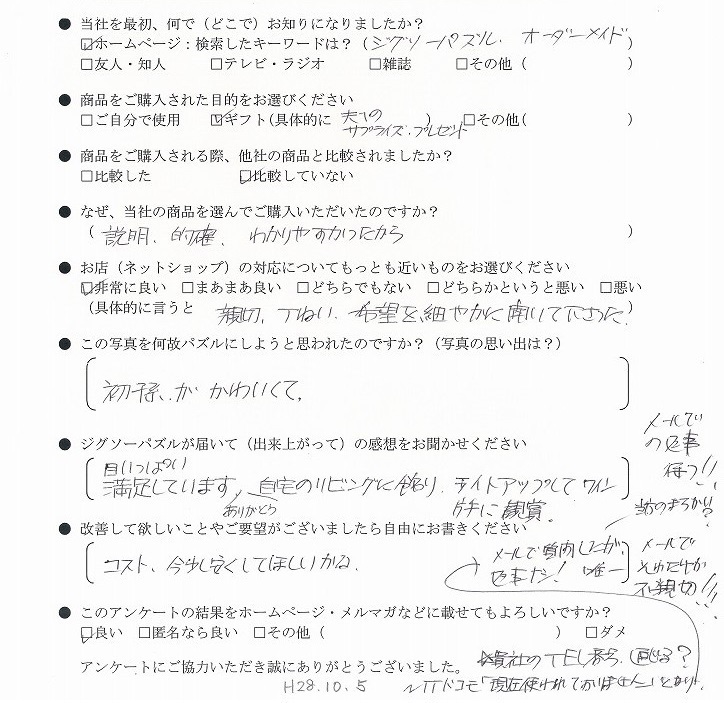 ● 当社を最初、何で（どこで）お知りになりましたか？
☑ホームページ：検索したキーワードは？（ジグソーパズル、オーダーメイド）
□友人・知人　□テレビ・ラジオ　□雑誌　□その他（　）
● 商品をご購入された目的をお選びください
□ご自分で使用　☑ギフト(具体的に 夫への サプライズ・プレゼント)　□その他(　)
● 商品をご購入される際、他社の商品と比較されましたか？
□比較した　☑比較していない
● なぜ、当社の商品を選んでご購入いただいたのですか？
（説明、的確、わかりやすかったから）
● お店（ネットショップ）の対応についてもっとも近いものをお選びください
☑非常に良い　□まあまあ良い　□どちらでもない　□どちらかというと悪い　□悪い
（具体的に言うと 親切、丁ねい、希望を細やかに聞いて下さった.）
● この写真を何故パズルにしようと思われたのですか？（写真の思い出は？）
初孫、がかわいくて、
● ジグソーパズルが届いて（出来上がって）の感想をお聞かせください
満足しています。自宅のリビングに飾り、ライトアップしてワイン
ありがとう
片手に観賞。
● 改善して欲しいことやご要望がございましたら自由にお書きください
コスト、今少し安くしてほしいかな、
メールで質問したが、
唯一
メールで
の返事
待つ!!
メールで
それだけが
不親切!!!
● このアンケートの結果をホームページ・メルマガなどに載せてもよろしいですか？
☑良い　□匿名なら良い　□その他（　）　□ダメ
アンケートにご協力いただき誠にありがとうございました。
貴社のTEL番号、
H28.10.5
NTTドコモ「現在使われておりません」とか